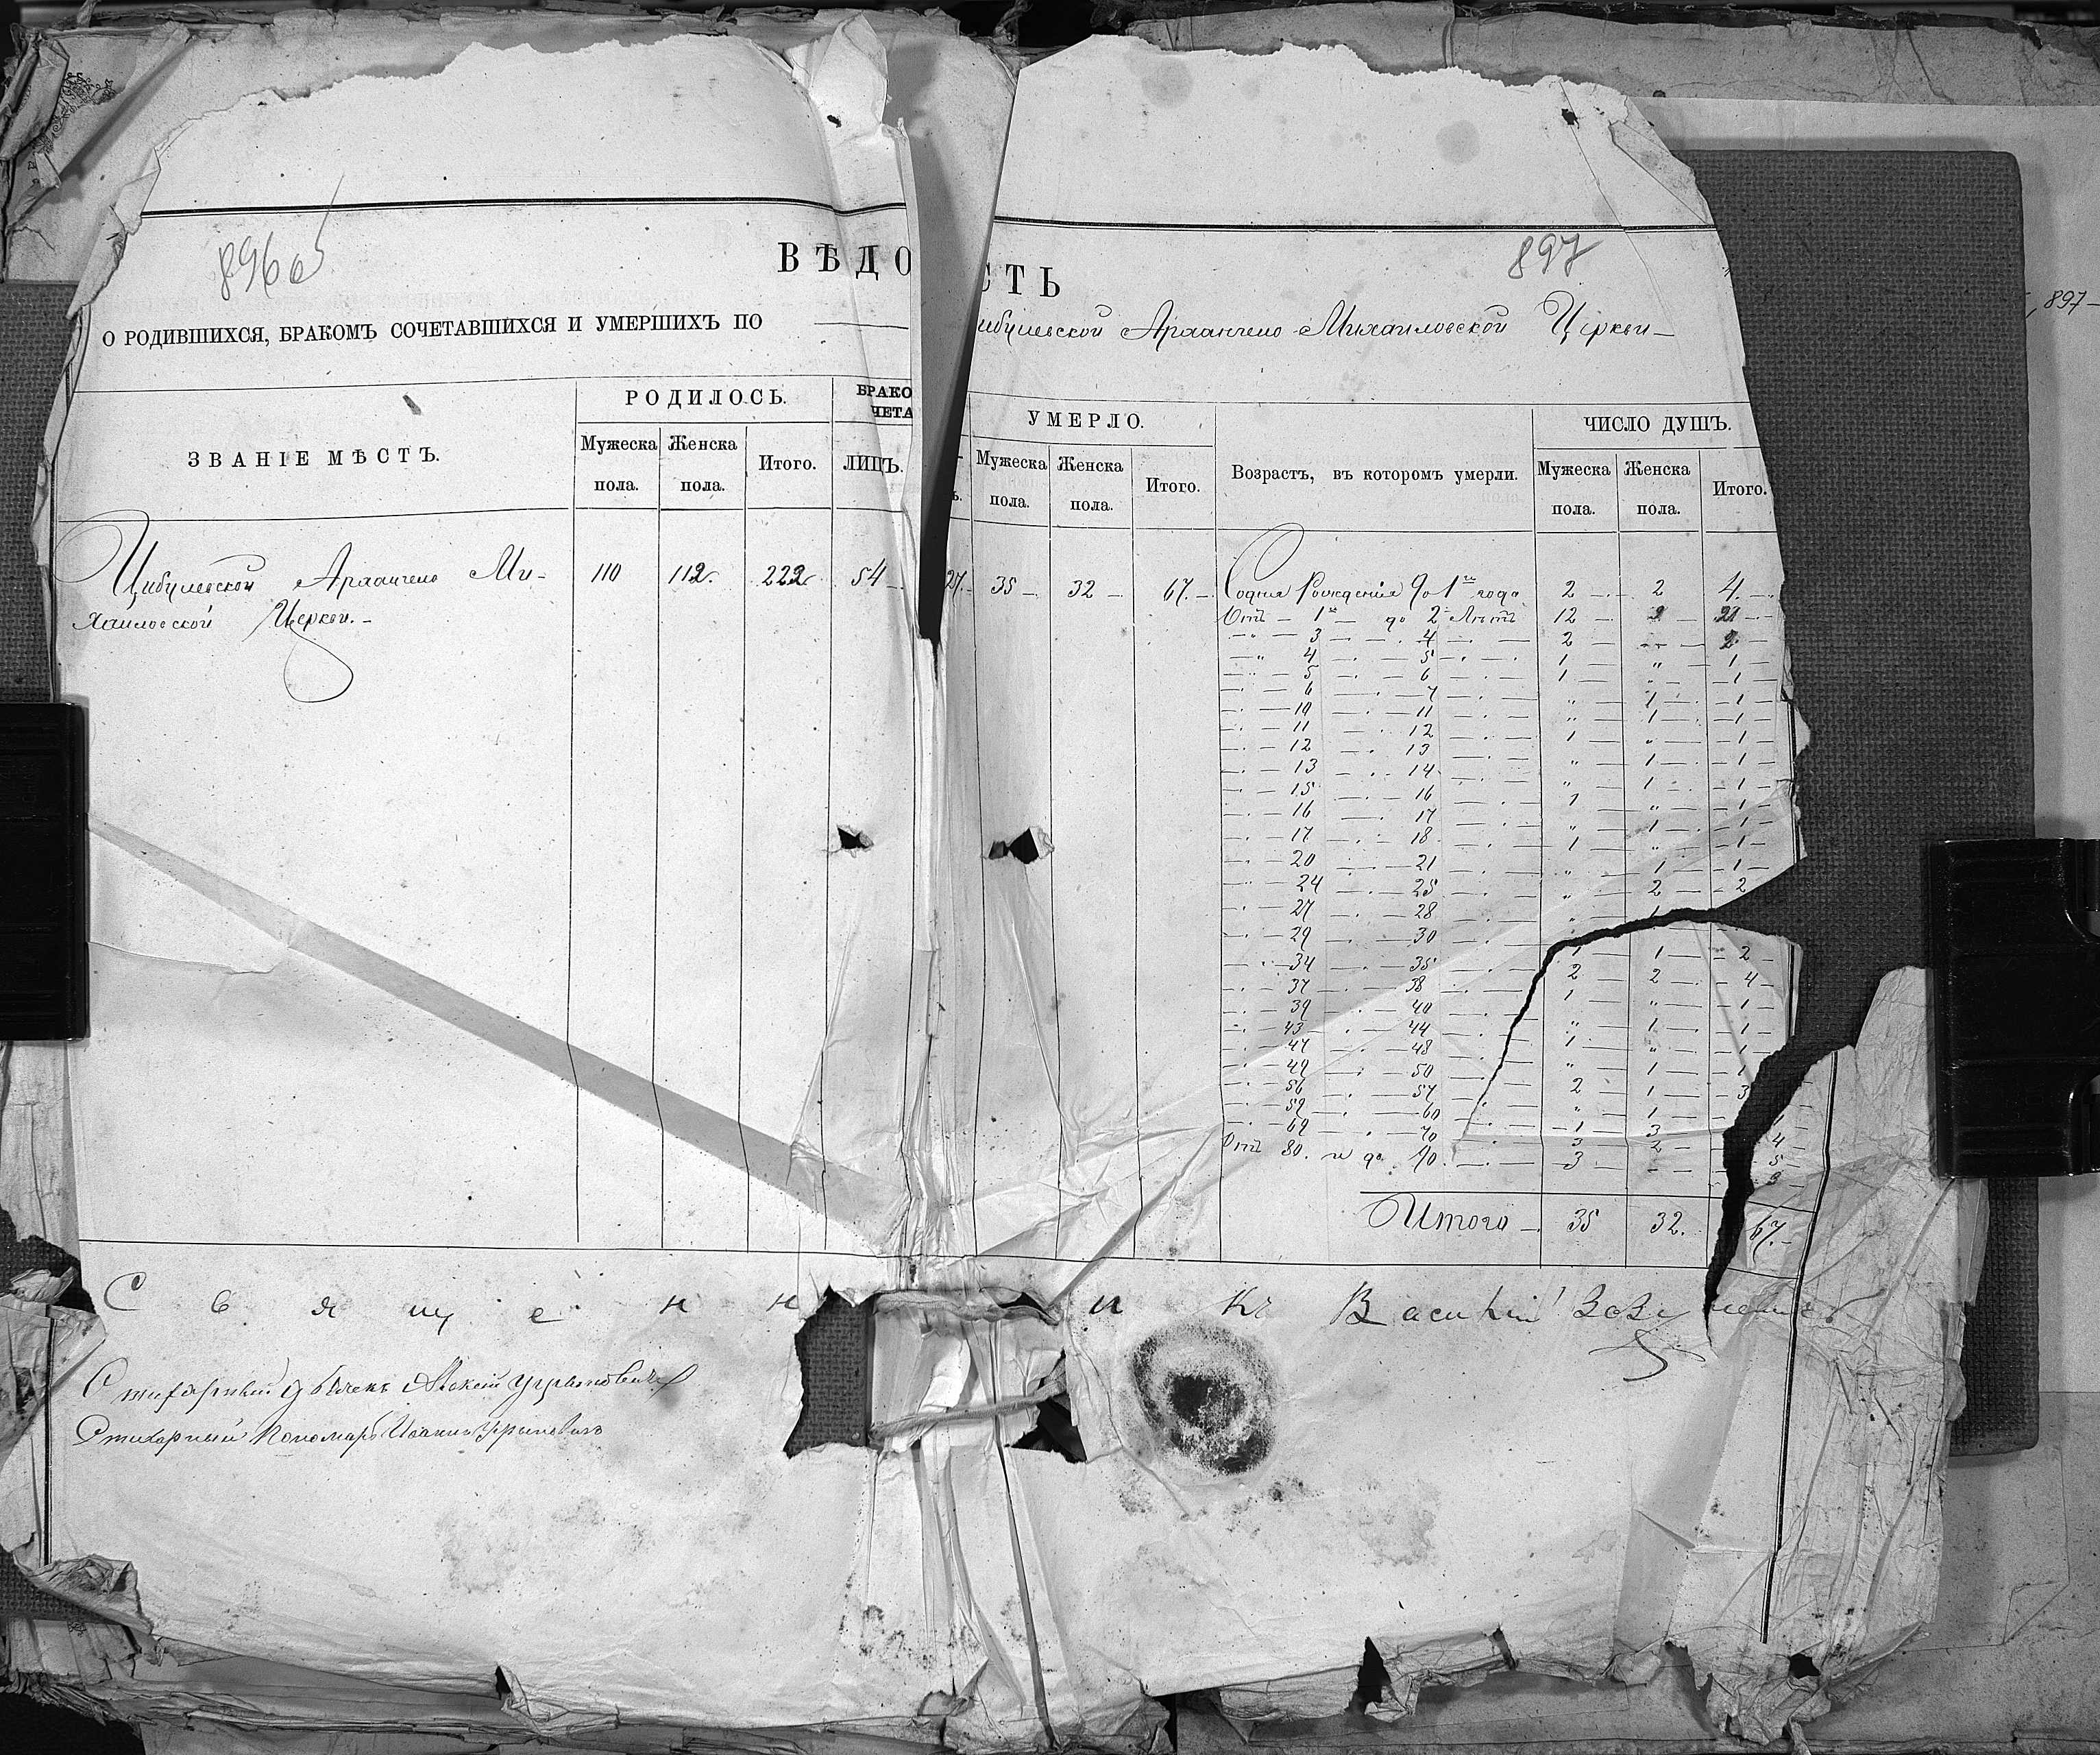 896об
897
897
ВѢДО СТЬ
О РОДИВШИХСЯ, БРАКОМЪ СОЧЕТАВШИХСЯ И УМЕРШИХЪ ПО
ибулевской Архангело-Михаиловской Церкви
ЗВАНІЕ МѢСТЪ.
РОДИЛОСЬ.
Мужеска пола.
Женска пола.
Итого.
БРАКО
ЧЕТА
ЛИЦЪ.
УМЕРЛО.
Мужеска пола.
Женска пола.
Итого.
Возрастъ, въ которомъ умерли.
ЧИСЛО ДУШЪ.
Мужеска пола.
Женска пола.
Итого.
Цибулевской Архангело Ми-
хаиловской Церкви.
110 112. 222 54 27. 35 32 67.
Содня Рожденія до 1го года 2 2 4.
Отъ 1го до 2 Лѣтъ 12
3 4 2
4 5 1 „ 1
5 6 1 „ 1
6 7 „ 1 1
10 11 „ 1 1
11 12 1 „ 1
12 13 „ 1 1
13 14 „ 1 1
15 16 1 „ 1
16 17 „ 1 1
17 18 1 „ 1
20 21 „ 1 1
24 25 „ 2 2
27 28
29 30 1 1 2
34 35 2 2 4
37 38 1 „ 1
39 40 „ 1 1
43 44 1 „ 1
47 48 „ 1 1
49 50 2 1 3
56 57 „ 1
59 60 1 3 4
69 70 3 2 5
Отъ 80. и до 90. 3 3
Итого 35 32. 67.
Священникъ Василій
Стихарный дьячекъ Алексій
Стихарный Пономарь